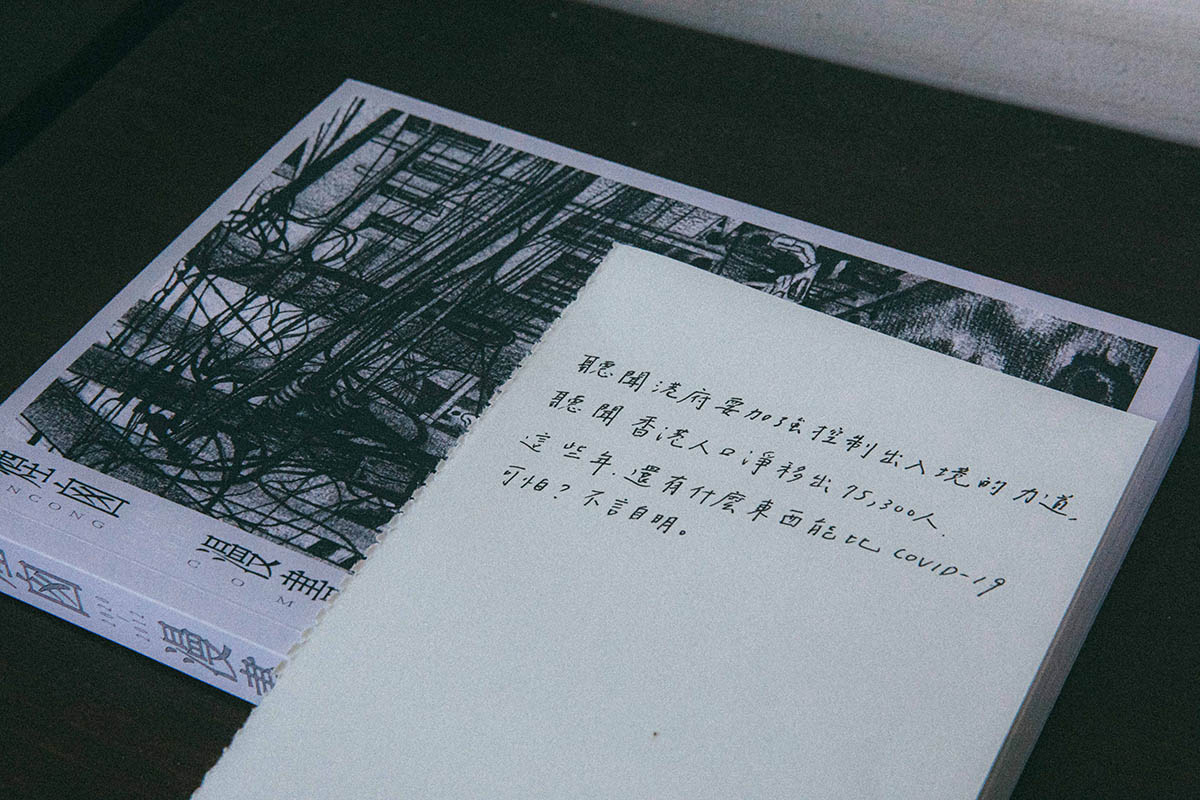 聽聞港府要加強控制出入境的力道,
聽聞香港人口淨移出75,300人.
這些年.還有什麼東西能比 COVID-19
可怕?不言自明。
NGONG
漫畫
COM
漫畫